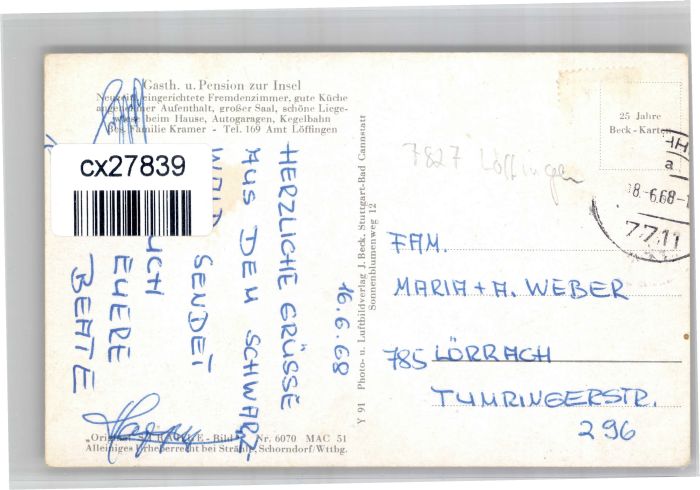 Gasth. u. Pension zur Insel
eingerichtete Fremdenzimmer, gute Küche
Aufenthalt, großer Saal, schöne Liege-
beim Hause, Autogaragen, Kegelbahn
Bes. Familie Kramer - Tel. 169 Amt Löffingen
cx27839
16.6.68
HERZLICHE GRÜSSE
AUS DEM SCHWARZ-
WALD
SENDET
EUCH
EUERE
BEATE
„Original Nr. 6070 MAC 51
Alleiniges Urheberrecht bei Strähle, Schorndorf/Wttbg.
Y 91 Photo- u. Luftbildverlag J. Beck, Stuttgart-Bad Cannstatt
Sonnenblumenweg 12
25 Jahre
Beck-Karten
a
18.-6.68-1
7711
7827 Löffingen
FAM.
MARIA + A. WEBER
785 LÖRRACH
TUMRINGERSTR.
296